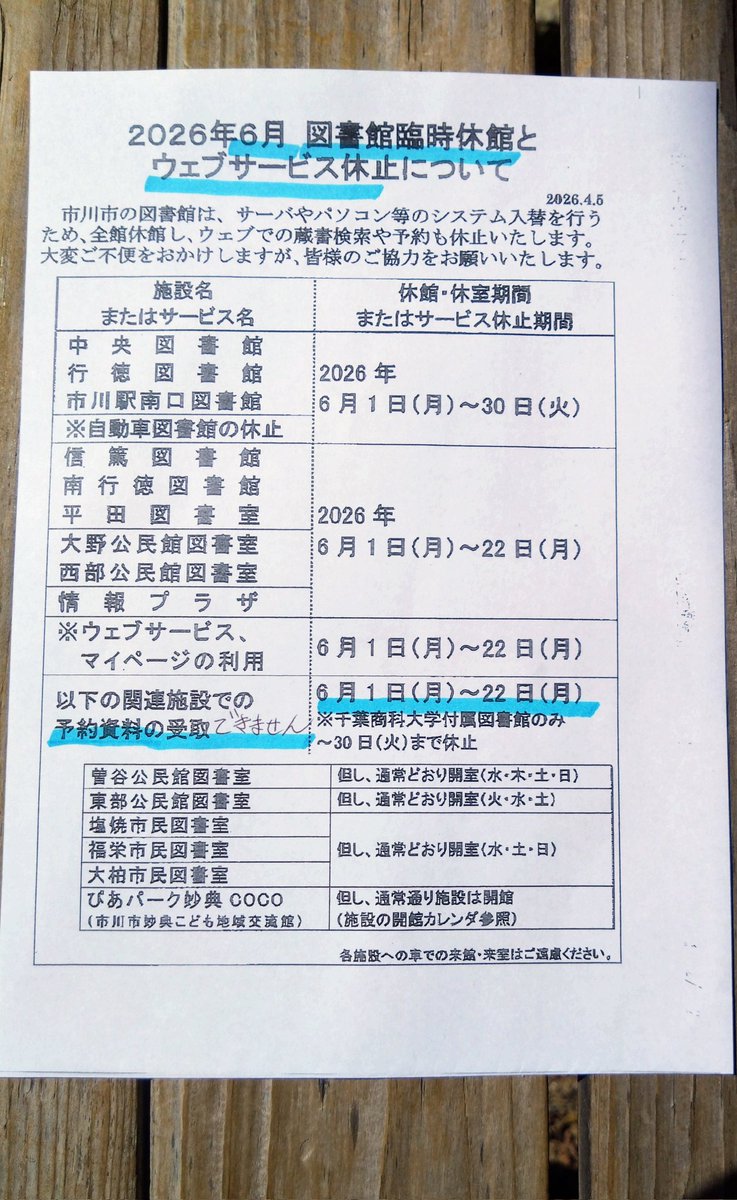 2026年6月 図書館臨時休館と
ウェブサービス休止について
2026.4.5
市川市の図書館は、サーバやパソコン等のシステム入替を行う
ため、全館休館し、ウェブでの蔵書検索や予約も休止いたします。
大変ご不便をおかけしますが、皆様のご協力をお願いいたします。
施設名
またはサービス名
休館・休室期間
またはサービス休止期間
中央図書館
行徳図書館
市川駅南口図書館
※自動車図書館の休止
2026年
6月1日(月)～30日(火)
信篤図書館
南行徳図書館
平田図書室
大野公民館図書室
西部公民館図書室
情報プラザ
2026年
6月1日(月)～22日(月)
※ウェブサービス、
マイページの利用
6月1日(月)～22日(月)
以下の関連施設での
予約資料の受取できません
6月1日(月)～22日(月)
※千葉商科大学付属図書館のみ
～30日(火)まで休止
曽谷公民館図書室
但し、通常どおり開室(水・木・土・日)
東部公民館図書室
但し、通常どおり開室(火・水・土)
塩焼市民図書室
福栄市民図書室
大柏市民図書室
但し、通常どおり開室(水・土・日)
ぴあパーク妙典COCO
(市川市妙典こども地域交流館)
但し、通常通り施設は開館
(施設の開館カレンダ参照)
各施設への車での来館・来室はご遠慮ください。